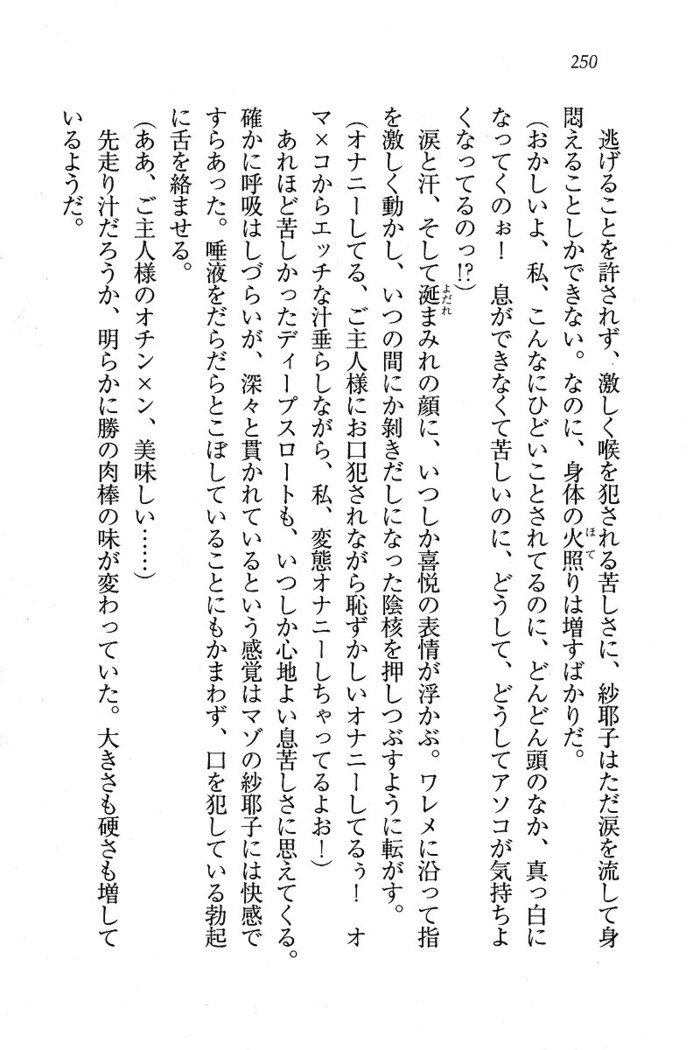 250
逃げることを許されず、激しく喉を犯される苦しさに、紗耶子はただ涙を流して身
悶えることしかできない。なのに、身体の火照りは増すばかりだ。
(おかしいよ、私、こんなにひどいことされてるのに、どんどん頭のなか、真っ白に
なってくのぉ! 息ができなくて苦しいのに、どうして、どうしてアソコが気持ちよ
くなってるのっ!?)
涙と汗、そして涎まみれの顔に、いつしか喜悦の表情が浮かぶ。ワレメに沿って指
を激しく動かし、いつの間にか剝きだしになった陰核を押しつぶすように転がす。
(オナニーしてる、ご主人様にお口犯されながら恥ずかしいオナニーしてるぅ! オ
マ×コからエッチな汁垂らしながら、私、変態オナニーしちゃってるよお!)
あれほど苦しかったディープスロートも、いつしか心地よい息苦しさに思えてくる。
確かに呼吸はしづらいが、深々と貫かれているという感覚はマゾの紗耶子には快感で
すらあった。唾液をだらだらとこぼしていることにもかまわず、口を犯している勃起
に舌を絡ませる。
(ああ、ご主人様のオチン×ン、美味しい……)
先走り汁だろうか、明らかに勝の肉棒の味が変わっていた。大きさも硬さも増して
いるようだ。